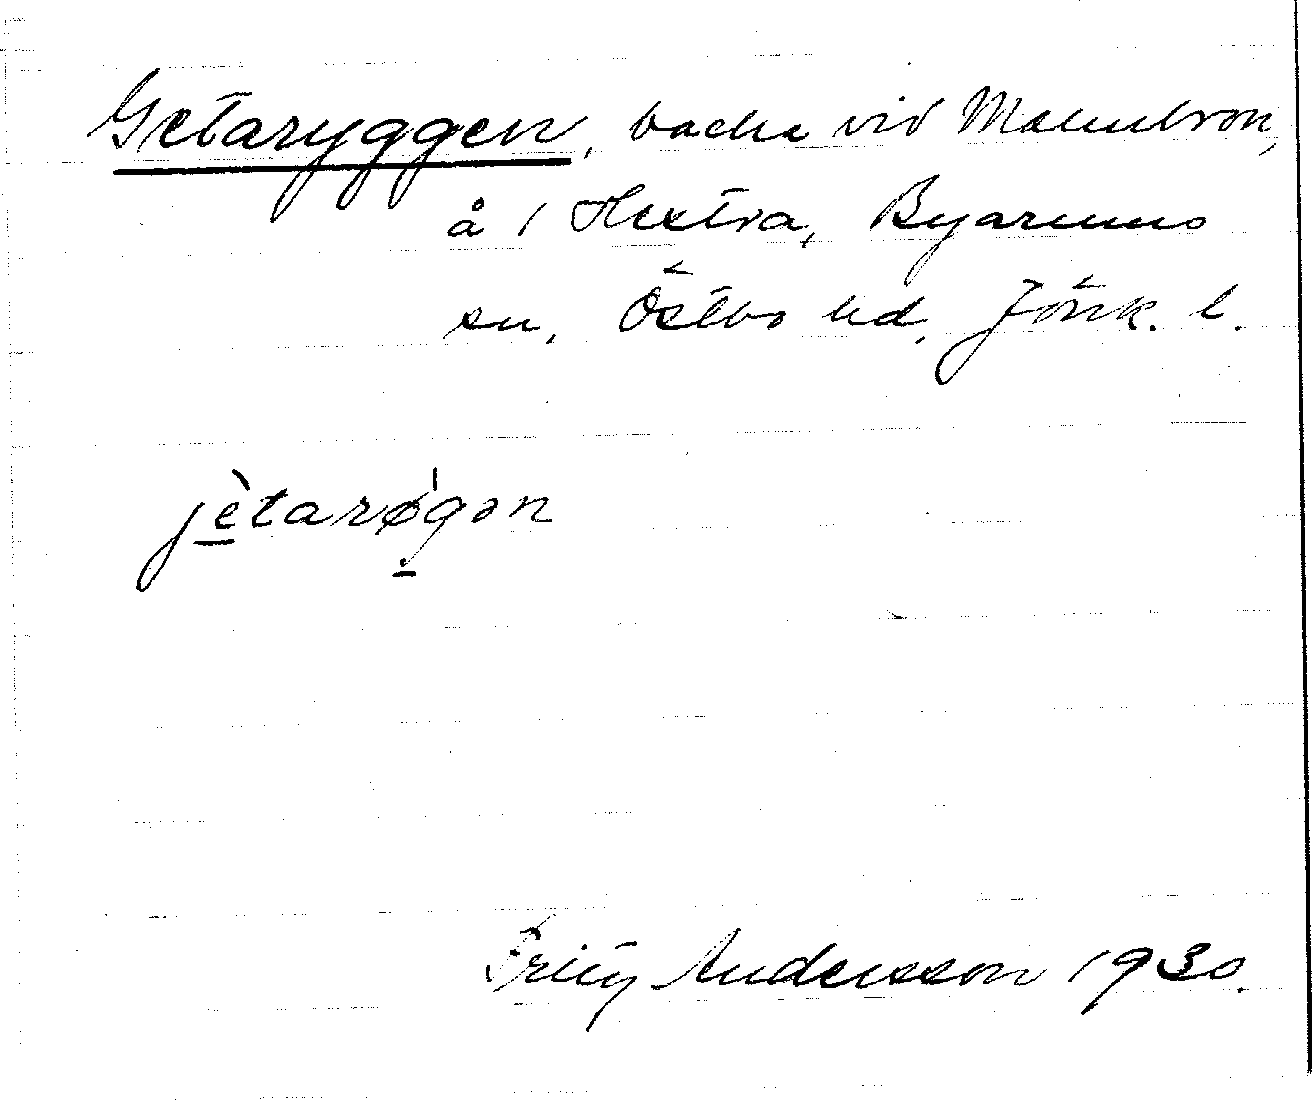 Getaryggen, backe vid Malmbron,
å 1 Hestra, Byarums
sn, Östbo hd, Jönk. l.
jètarǿgən
Fritz Andersson 1930.